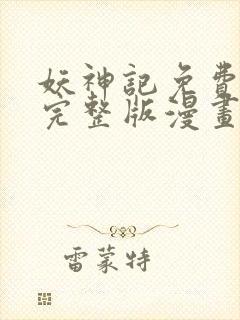 妖神記免費
完整版漫畫
雷蒙特